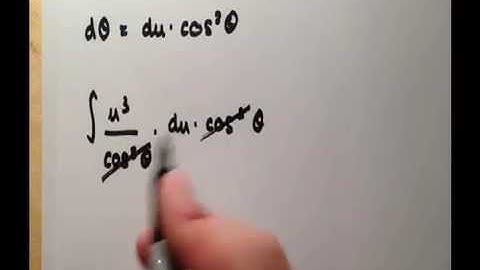 dθ = du · cos²θ
∫ u³/cos²θ · du · cos²θ